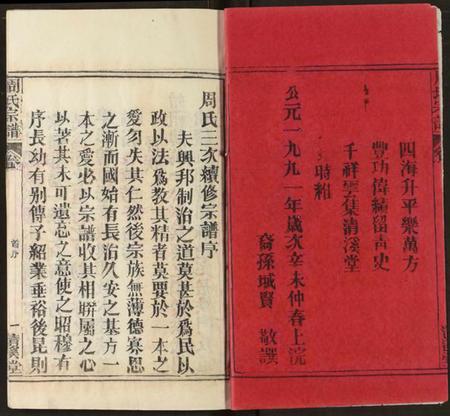 四海升平樂萬方
豐功偉績留古史
千祥雲集清溪堂
時維
公元一九九一年歲次辛未仲春上浣
裔孫城賢 敬譔
周氏三次續修宗譜序
夫興邦制治之道莫甚於爲民以
政以法爲教其精者莫要於一本之
愛勿失其仁然後宗族無薄德寡恩
之漸而國始有長治久安之基方一
本之愛必以宗譜收其相聯屬之心
以著其木可遺忘之意使之昭穆有
序長幼有別傳子紹業垂裕後昆則
周氏宗譜
首序
一
清溪堂